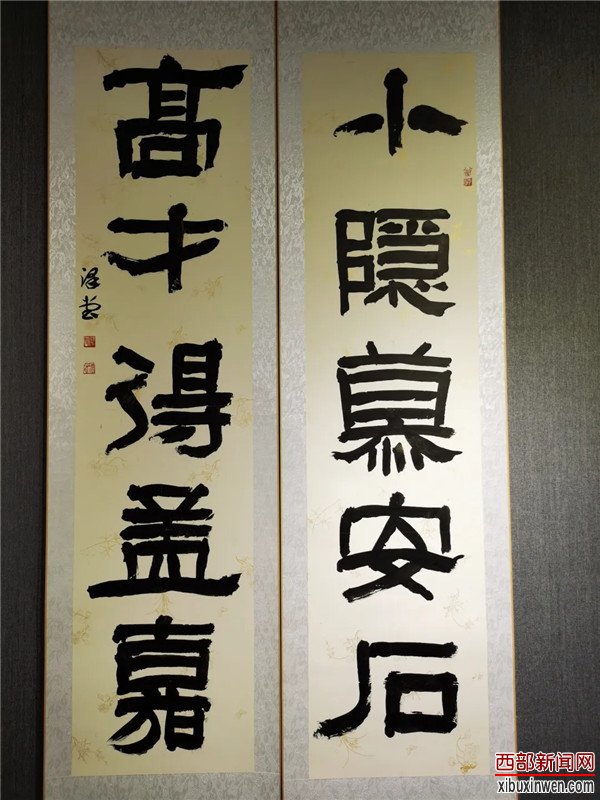 小隱慕安石
高才得孟嘉
西部新闻网
xibuxinwen.com